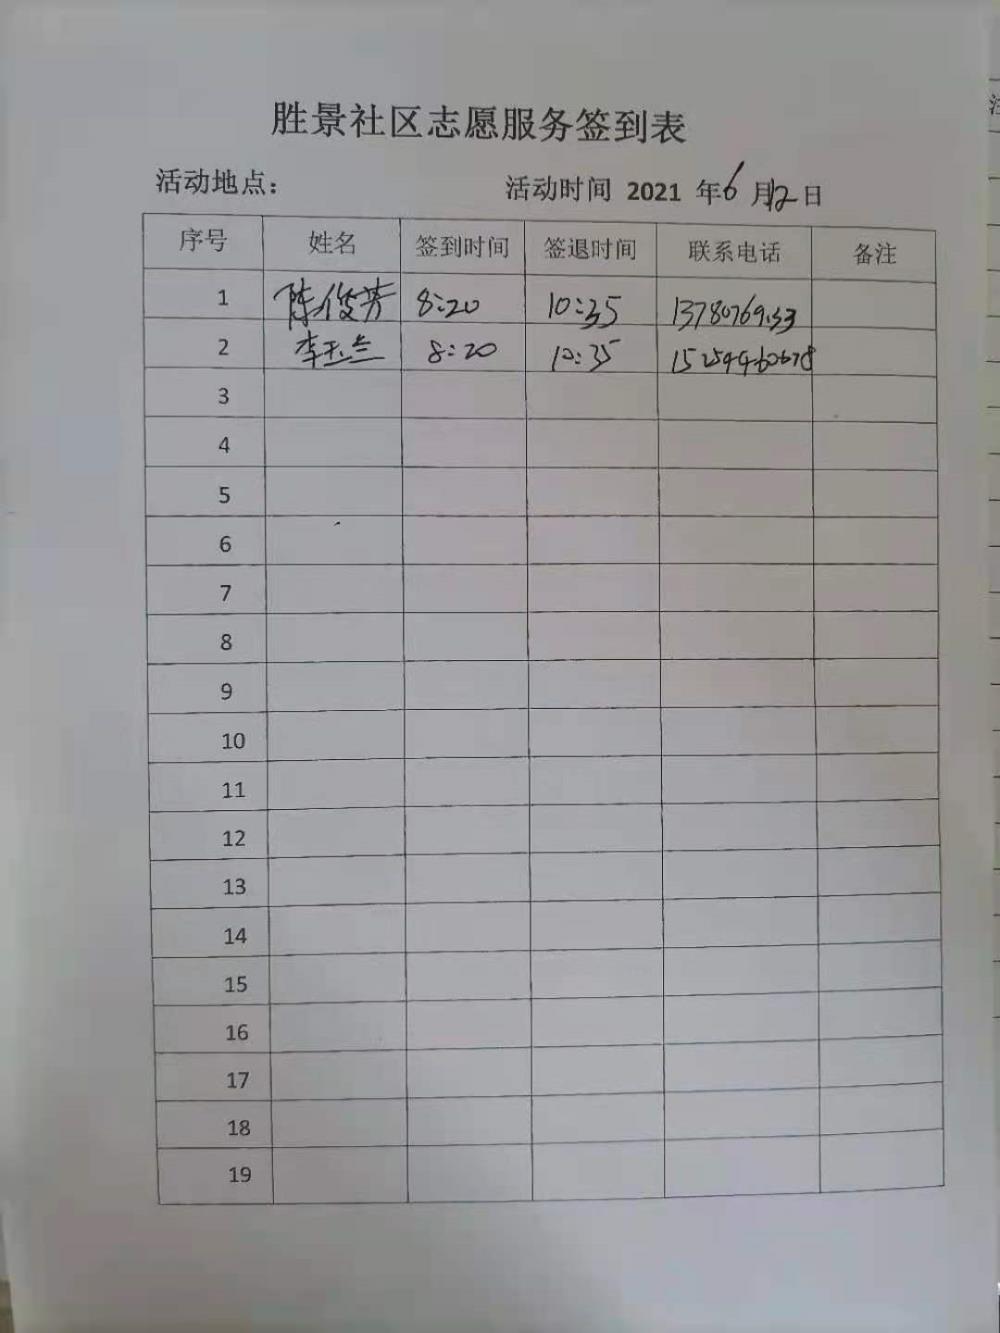 胜景社区志愿服务签到表
活动地点： 活动时间 2021 年6月12日
序号 姓名 签到时间 签退时间 联系电话 备注
1 陈俊芳 8:20 10:35
2 李玉兰 8:20 10:35
3
4
5
6
7
8
9
10
11
12
13
14
15
16
17
18
19